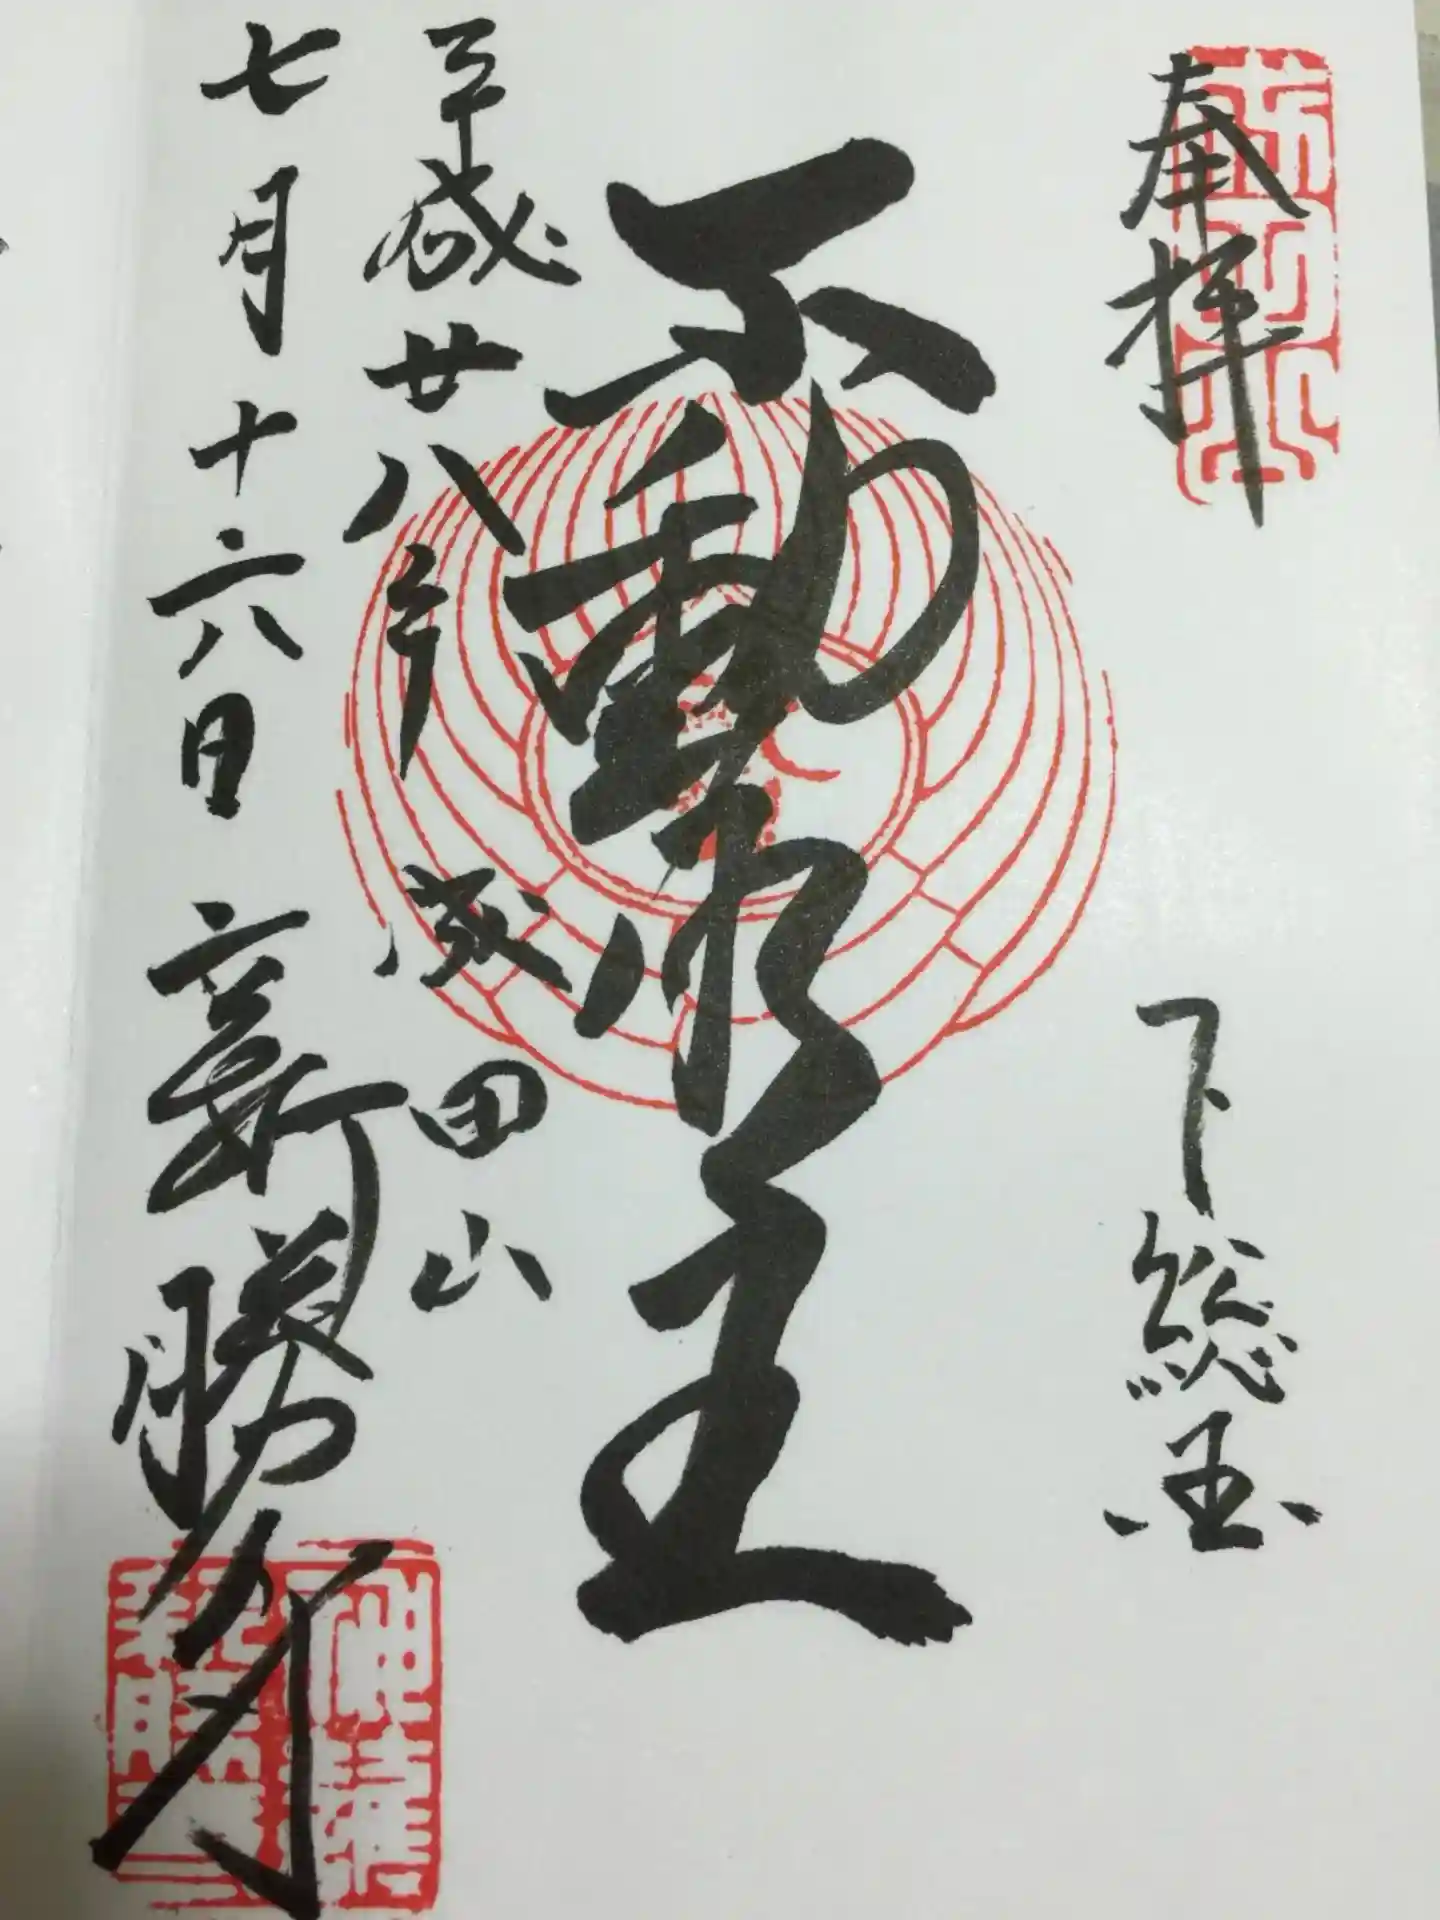 奉拝
下総国
不動明王
平成廿八年
成田山
七月十六日
新勝寺